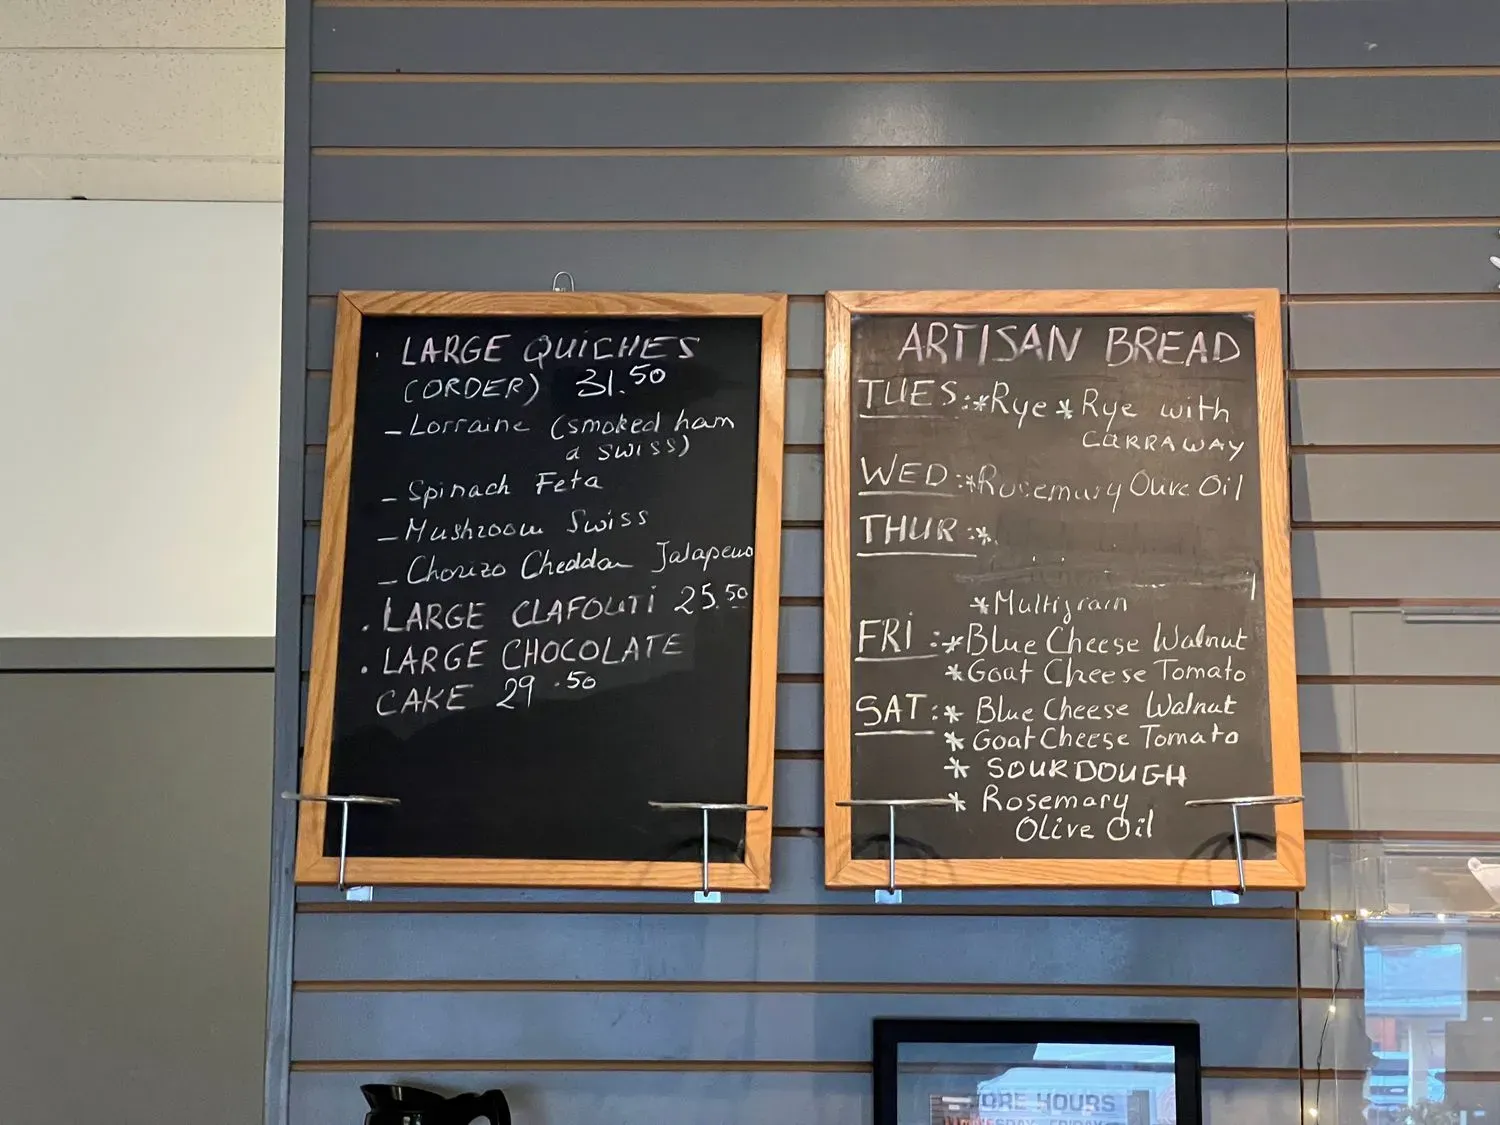 . LARGE QUICHES
(ORDER) 31.50
- Lorraine (smoked ham
a swiss)
- Spinach Feta
- Mushroom Swiss
- Chorizo Cheddar Jalapeno
. LARGE CLAFOUTI 25.50
. LARGE CHOCOLATE
CAKE 29.50
ARTISAN BREAD
TUES: *Rye * Rye with
CARRAWAY
WED: *Rosemary Olive Oil
THUR: *
*Multigrain
FRI: *Blue Cheese Walnut
*Goat Cheese Tomato
SAT: * Blue Cheese Walnut
* Goat Cheese Tomato
* SOURDOUGH
* Rosemary
Olive Oil
HOURS